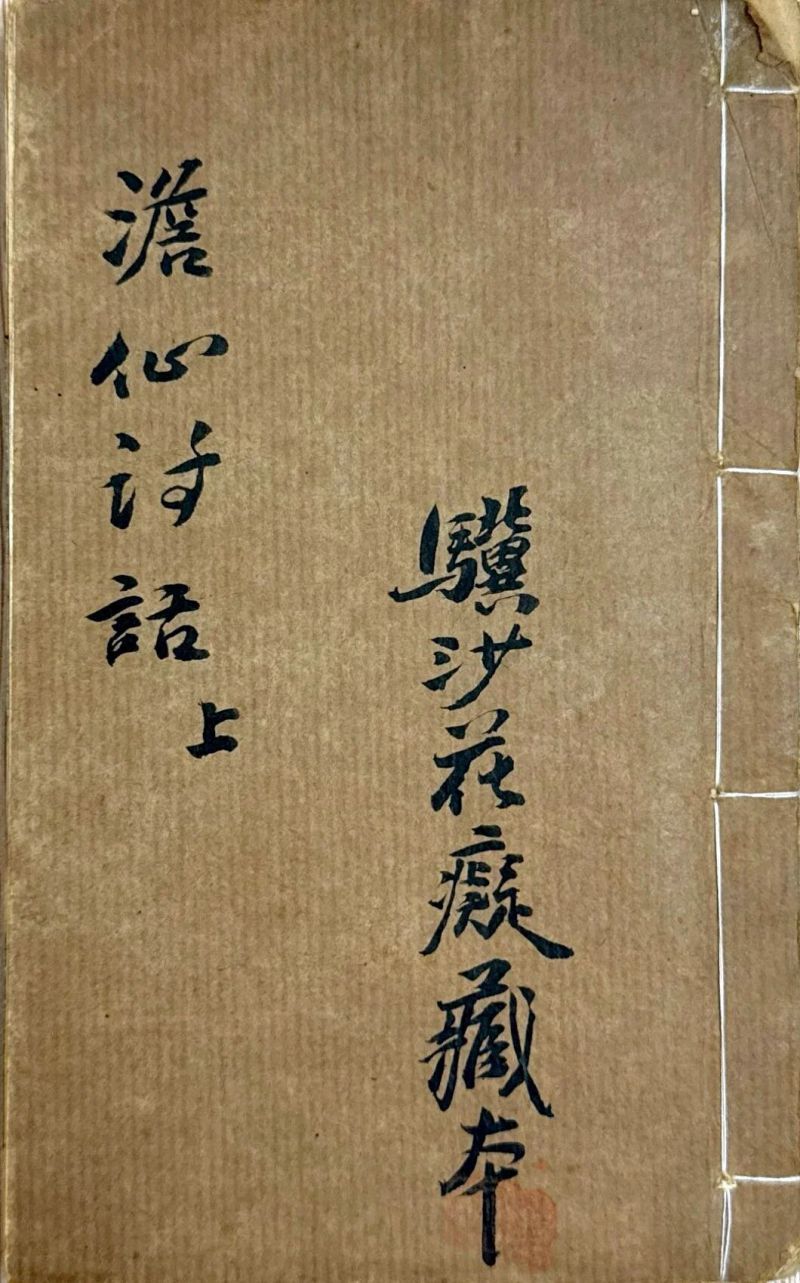 驥沙花癡藏本
澹仙詩話 上